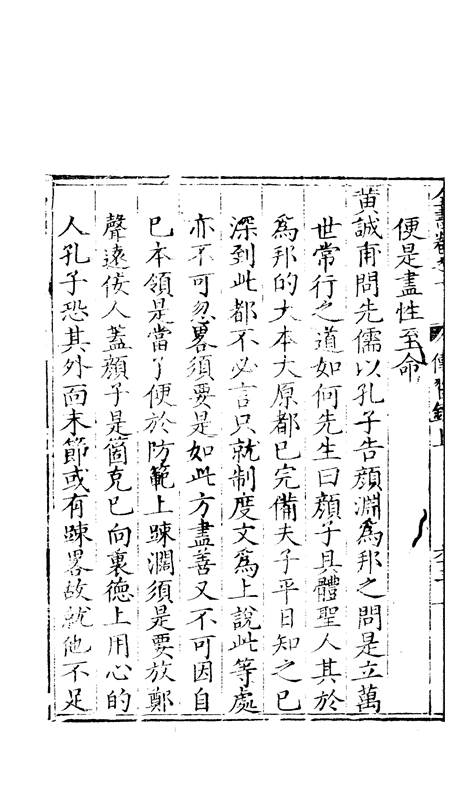 全書卷之一
傳習錄上
便是盡性至命
黄誠甫問先儒以孔子告顔淵爲邦之問是立萬
世常行之道如何先生曰顔子具體聖人其於
爲邦的大本大原都已完備夫子平日知之已
深到此都不必言只就制度文爲上說此等處
亦不可忽畧須要是如此方盡善又不可因自
已本領是當了便於防範上踈濶須是要放鄭
聲遠佞人蓋顔子是箇克已向裏德上用心的
人孔子恐其外面末節或有踈畧故就他不足